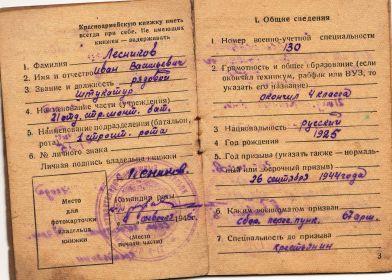 Красноармейскую книжку иметь
всегда при себе. Не имеющих
книжки — задерживать
1. Фамилия Лесников
2. Имя и отчество Иван
3. Звание и должность рядовой
штукатур
4. Наименование части (учреждения)
21 отд. строит. бат.
5. Наименование подразделения (батальон,
рота) 1 строит. рота
6. № личного знака
Личная подпись владельца книжки
Место
для
фотокарточки
владельца
книжки
Командир роты
1945г.
(Место
печати части)
I. Общие сведения
1. Номер военно-учетной специальности
130
2. Грамотность и общее образование (если
окончил техникум, рабфак или ВУЗ, то
указать его название)
окончил 4 класса
3. Национальность русский
4. Год рождения 1925
5. Год призыва (указать также — нормаль-
ный или досрочный призыв)
26 сентября 1944 года
6. Каким военкоматом призван
7. Специальность до призыва
крестьянин
3